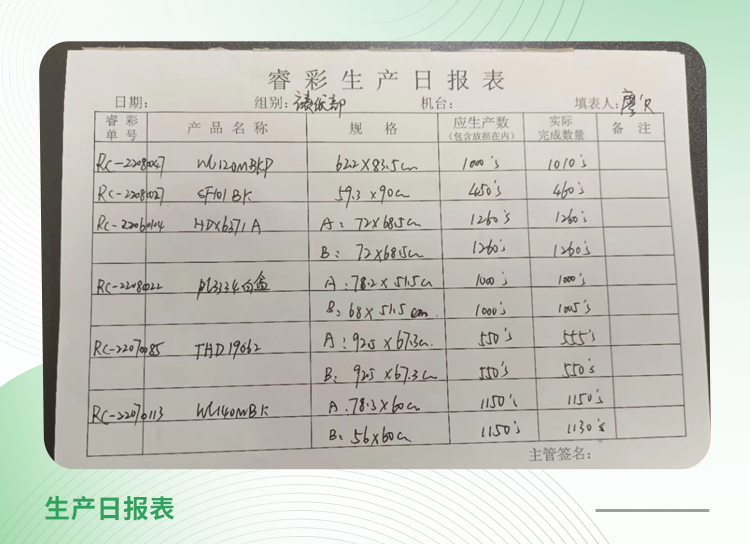 睿彩生产日报表
日期： 组别：裱纸部 机台： 填表人：
睿彩单号 产品名称 规格 应生产数（包含放损在内） 实际完成数量 备注
RC-22080047 WL120MBKD 62.2×83.5cm 1000's 1010's
RC-22080027 SF101BK 59.3×90cm 450's 460's
RC-22060104 HDX6371A A：72×68.5cm 1260's 1260's
B：72×68.5cm 1260's 1260's
RC-22080022 PL3334白盒 A：78.2×51.5cm 1000's 1000's
B：68×51.5cm 1000's 1005's
RC-22070085 THD19062 A：92.5×67.3cm 550's 555's
B：92.5×67.3cm 550's 550's
RC-22070113 WL140MBK A：78.3×60cm 1150's 1150's
B：56×60cm 1150's 1130's
主管签名：
生产日报表